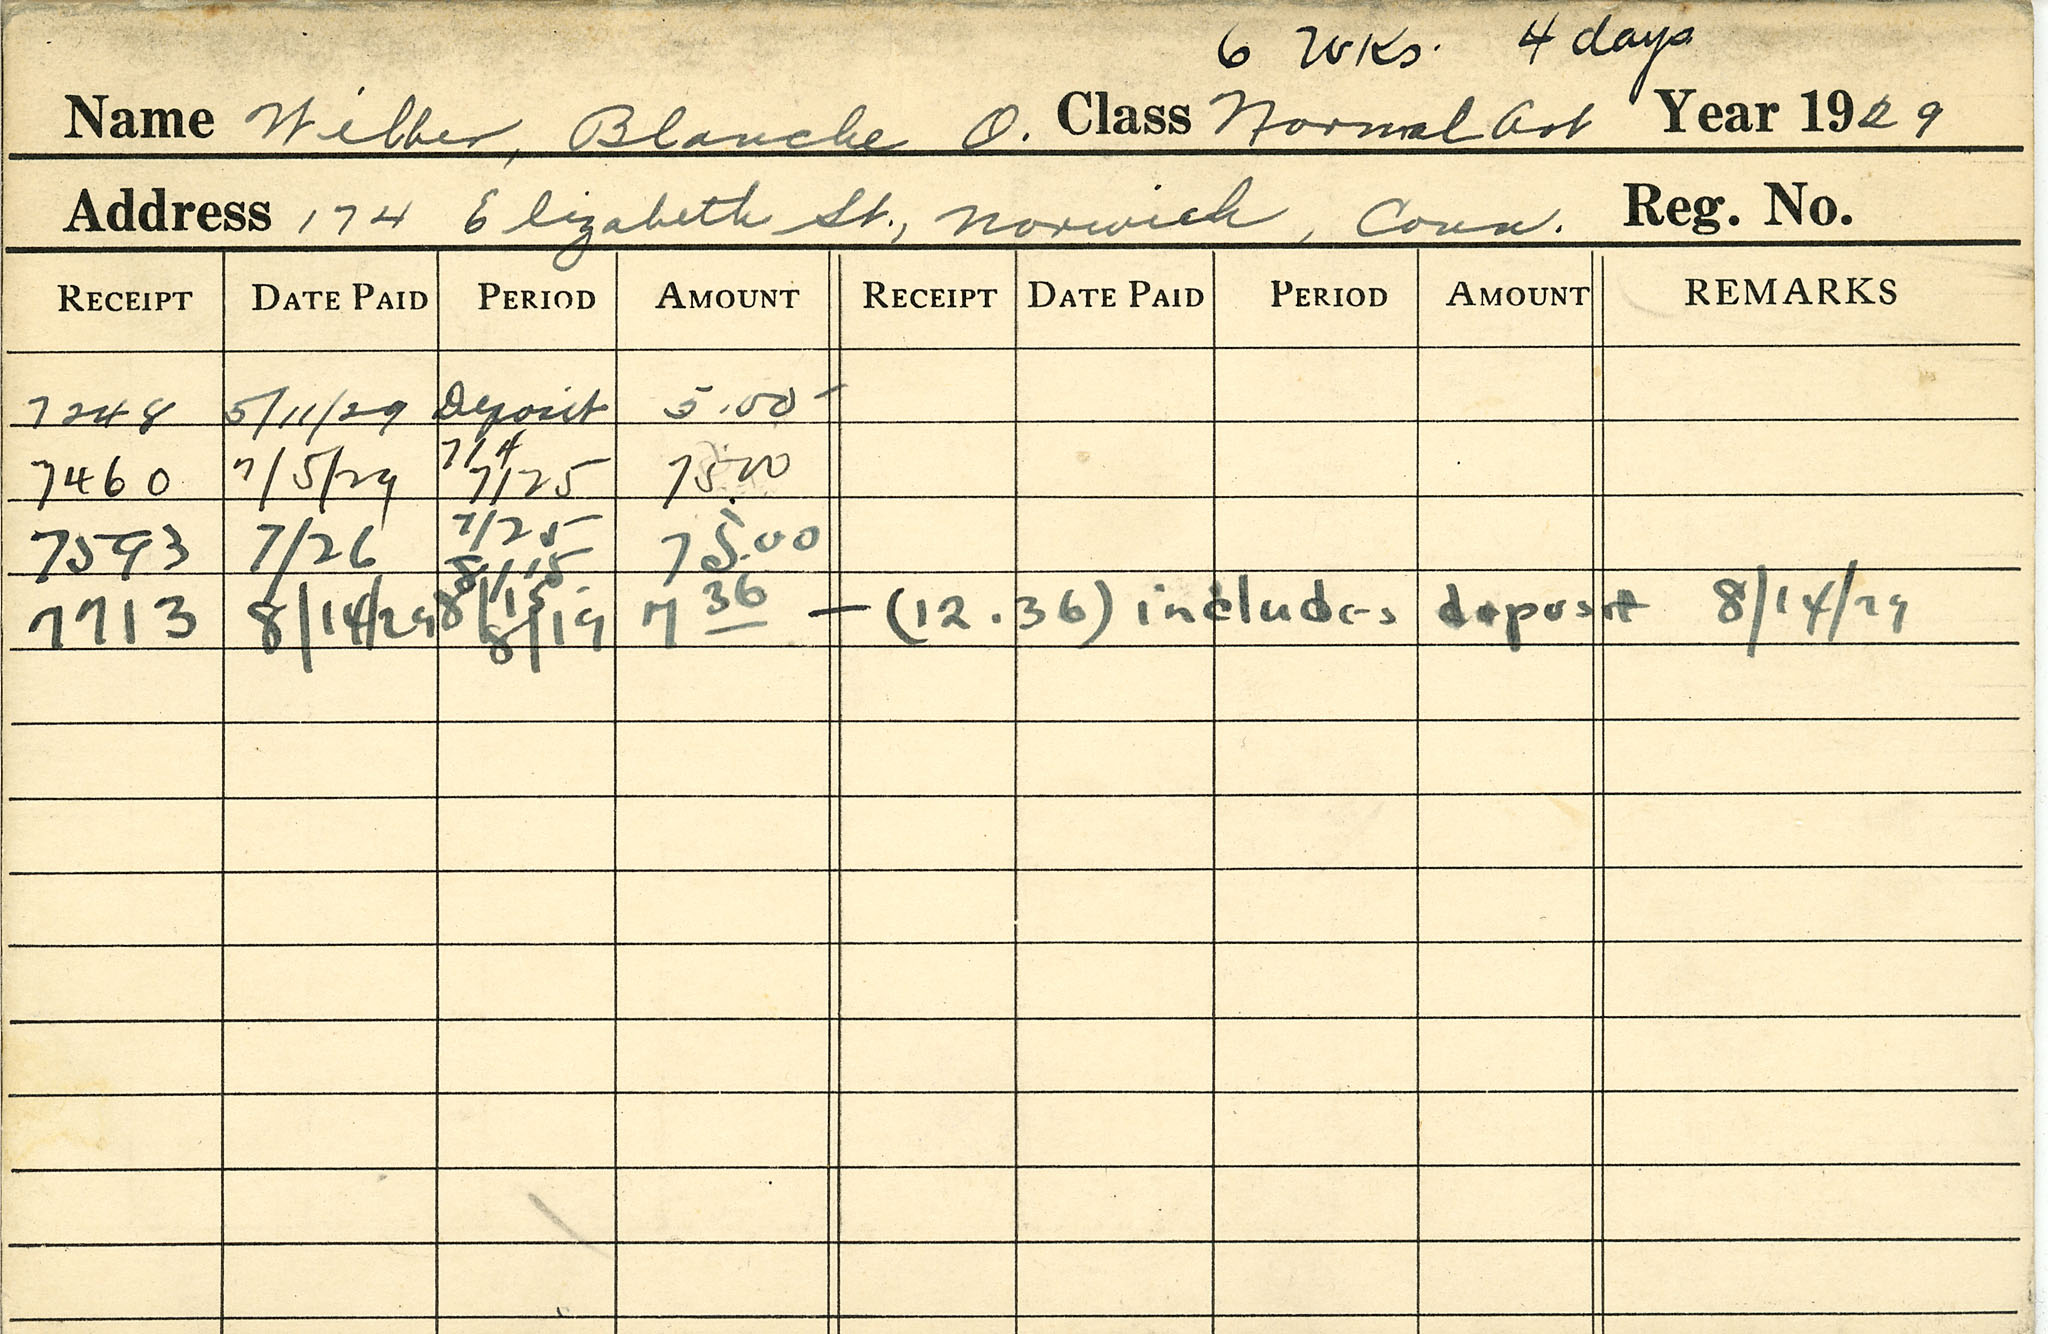 6 Wks. 4 days
Name Wilber, Blanche O. Class Normal Art Year 1929
Address 174 Elizabeth St., Norwich, Conn. Reg. No.
RECEIPT DATE PAID PERIOD AMOUNT RECEIPT DATE PAID PERIOD AMOUNT REMARKS
7248 5/11/29 Deposit 5.00
7/4
7460 7/5/29 7/25 75.00
7/25
7593 7/26 8/15 75.00
7713 8/14/29 8/15 7 36 — (12.36) includes deposit 8/14/29
8/19